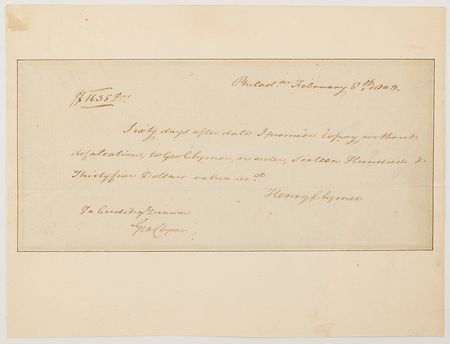 Philad.ª February 8th 1803.
$ 1635 Drs
Sixty days after date I promise to pay without
defalcation, to Geo Clymer, or order, Sixteen Hundred &
Thirtyfive Dollars value rec.d
Henry Clymer
To Credit of Drawer
Geo Clymer